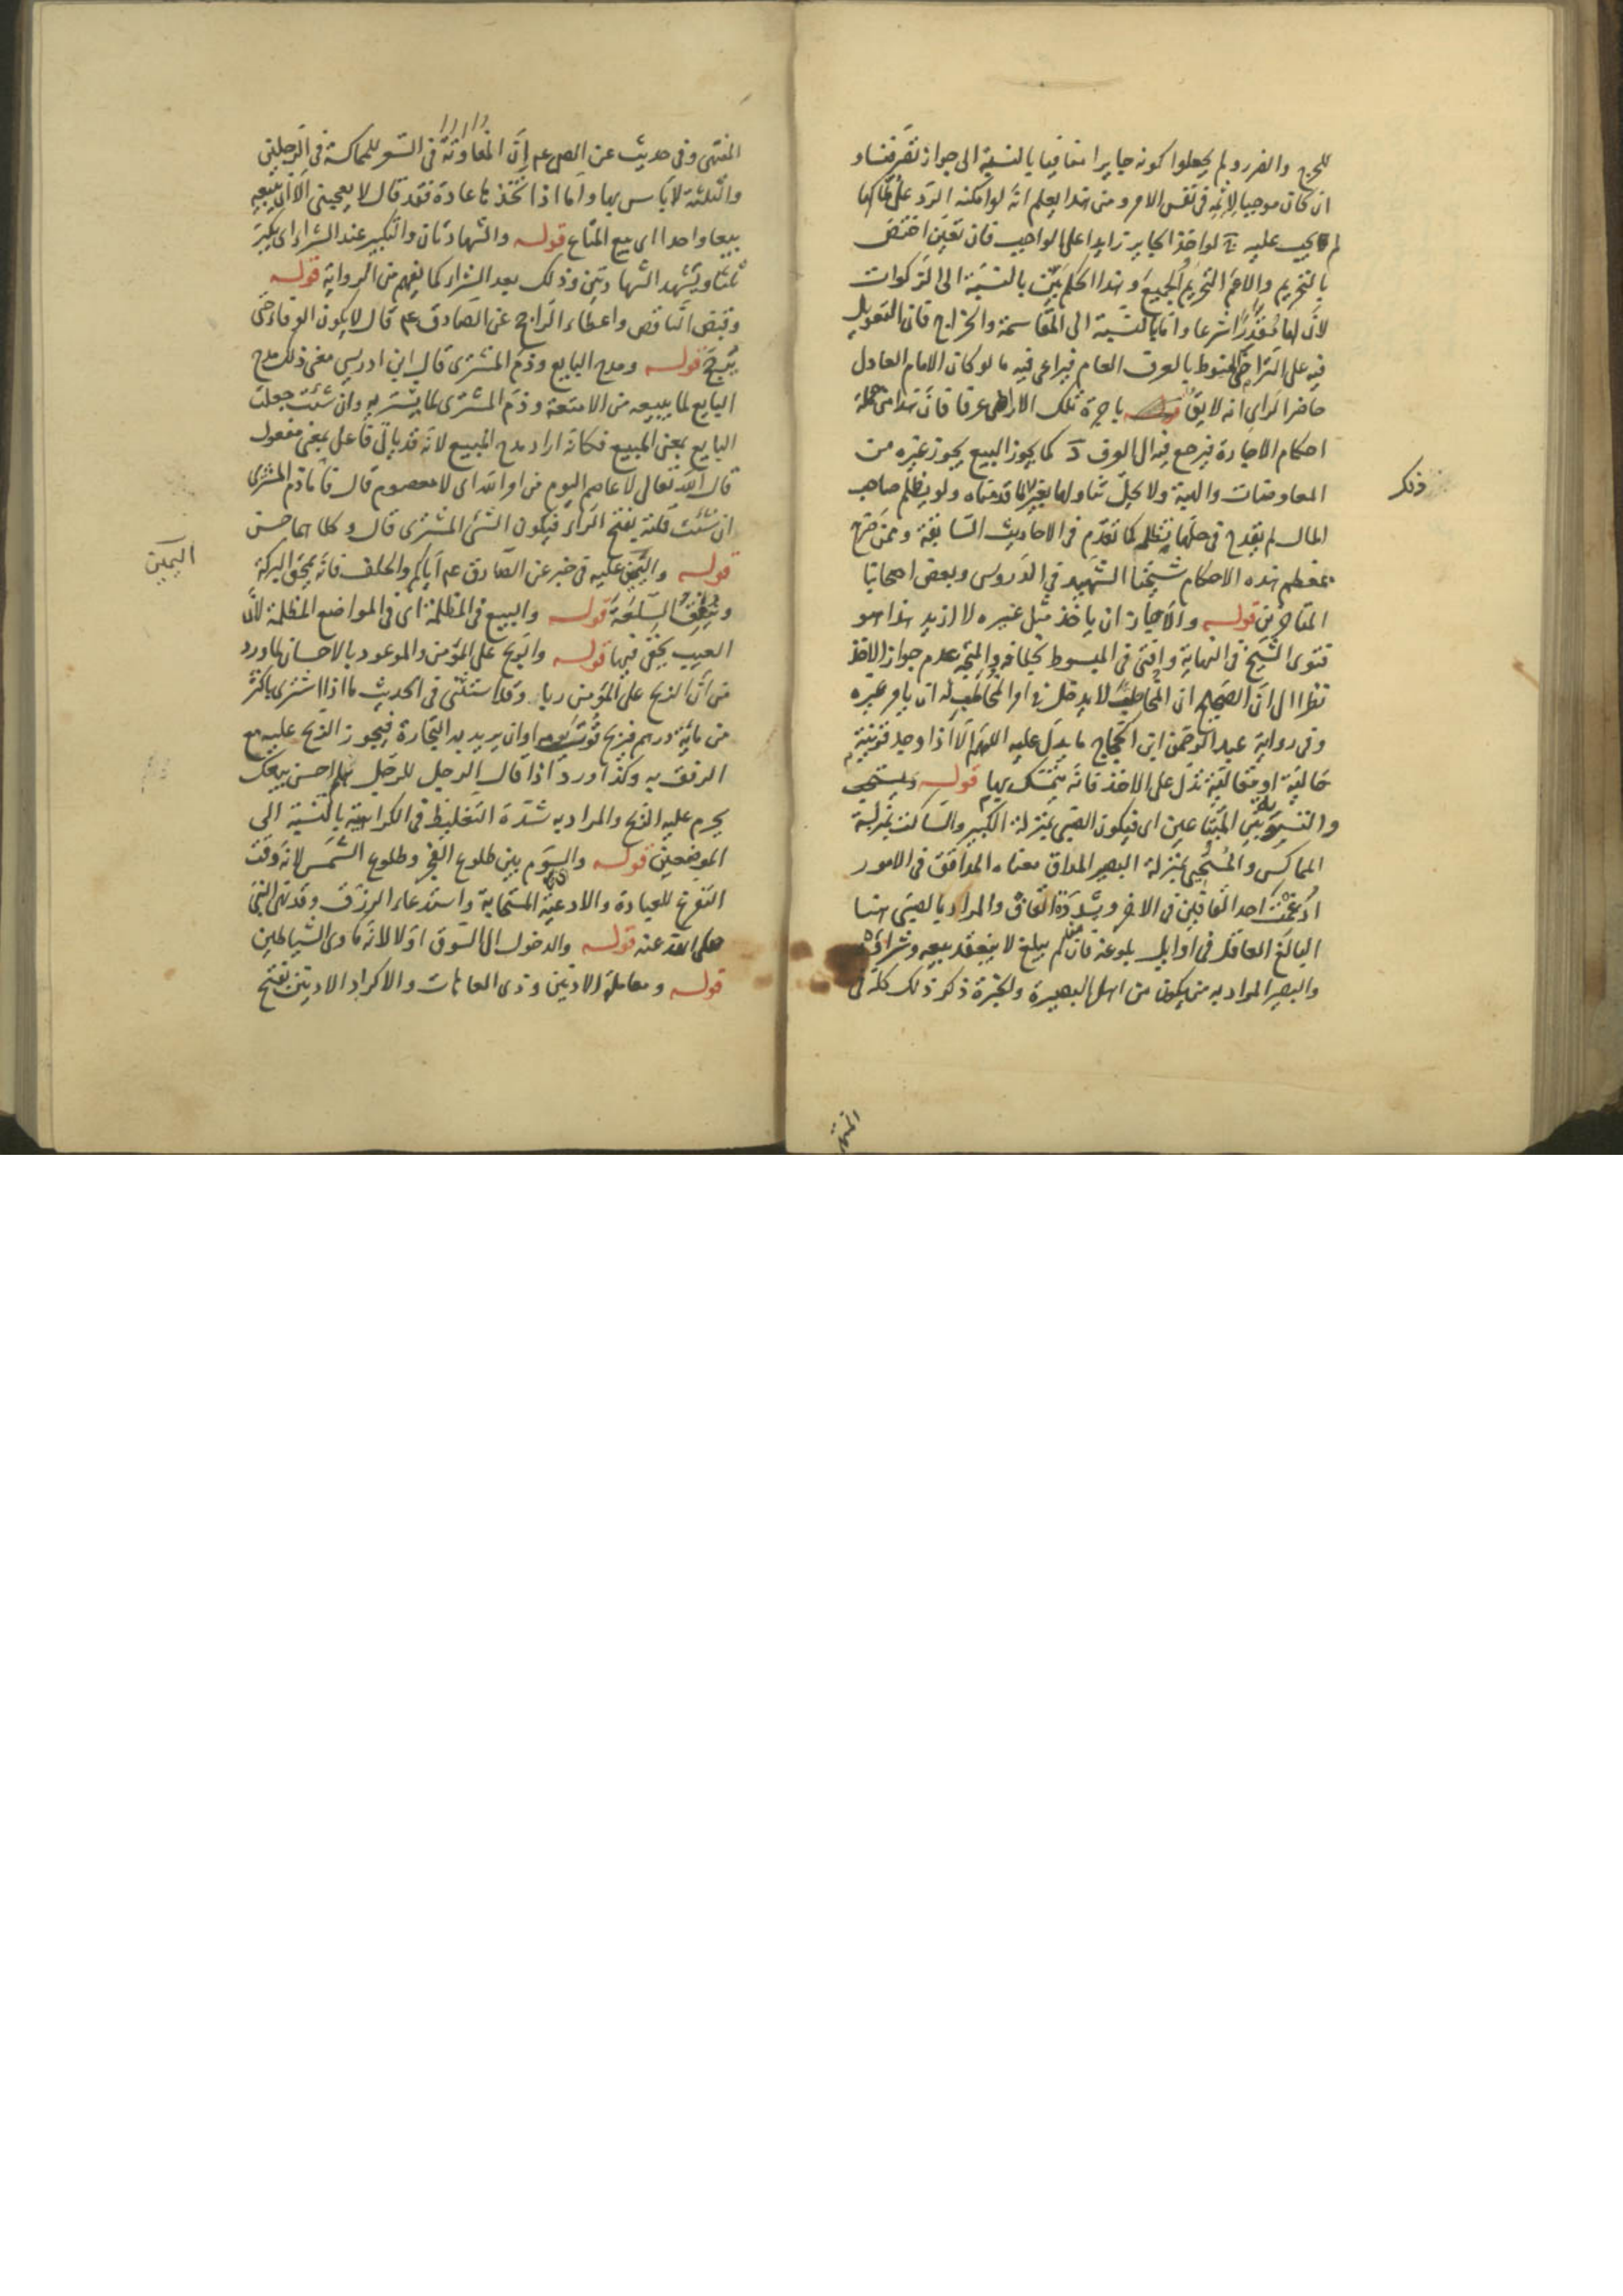 للحرج والضرر ولم يجعلوا كونه جايرا منافيا بالنسبة الى جواز تصرفنا و
ان كان موجبا لاثمه في نفس الامر ومن هذا يعلم انه لو امكنه الرد على ملاكها
لم يجب عليه لو اخذ الجاير زايدا على الواجب فان تعين اختص
بالتحريم والا عم التحريم الجميع وهذا الحكم بين بالنسبة الى الزكوات
لان لها مقدرا شرعا واما بالنسبة الى المقاسمة والخراج فان التعويل
فيه على التراضي المنوط بالعرف العام فيراعى فيه ما لو كان الامام العادل
حاضرا لراى انه لايق باجرة تلك الاراضى عرفا فان هذا من جملة
احكام الاجارة فيرجع فيه الى العرف كما يجوز البيع يجوز غيره من
المعاوضات والهبة ولا يحل تناولها بغير ما قدمناه ولو يتظلم صاحب
ذلك
المال لم يقدح في حلها تظلمه كما تقدم في الاحاديث السابقة وممن صرح
بمعظم هذه الاحكام شيخنا الشهيد في الدروس وبعض اصحابنا
المتاخرين قوله والاجاز ان ياخذ مثل غيره لا ازيد هذا هو
فتوى الشيخ في النهاية وافتى في المبسوط بخلافه والمتجه عدم جواز الاخذ
نظرا الى ان الصحيح ان المخاطب لا يدخل في امر المخاطب له ان يامر غيره
وفي رواية عبد الرحمن ابن الحجاج ما يدل عليه اللهم الا اذا وجد قرينة
حالية او مقالية تدل على الاخذ فانه يتمسك بها قوله ويستحب
والتسوية بين المتباعين اى فيكون الصبي بمنزلة الكبير والساكت بمنزلة
المماكس والمستحيى بمنزلة البصير المداق معناه المدافق في الامور
ادغمت احد القافين في الاخر وشددة القاف والمراد بالصبي هنا
البالغ العاقل في اوايل بلوغه فان من لم يبلغ لا ينعقد بيعه وشراؤه
والبصير المراد به من يكون من اهل البصيرة والخبرة ذكر ذلك كله في
المنتهى
المنتهى وفي حديث عن الص عم ان المفاوتة في السعر للمماكسة في الرجلين
والثلثة لا باس بها واما اذا اتخذها عادة فقد قال لا يعجبني الا ان يبيعه
بيعا واحدا اى بيع المتاع قوله والشهادتان والتكبير عند الشراء اى يكبر
ثلثا ويتشهد الشهادتين وذلك بعد الشراء كما يفهم من الرواية قوله
وقبض الناقص واعطاء الراجح عن الصادق عم قال لا يكون الوفاء حتى
يرجح قوله ومدح البايع وذم المشترى قال ابن ادريس معنى ذلك مدح
البايع لما يبيعه من الامتعة وذم المشترى لما يشتريه وان شئت جعلت
البايع بمعنى المبيع فكانه اراد مدح المبيع لانه قد ياتى فاعل بمعنى مفعول
قال الله تعالى لا عاصم اليوم من امر الله اى لا معصوم قال فاما ذم المشترى
ان شئت قلته بفتح الراء فيكون الشئ المشترى قال وكلاهما حسن
قوله واليمين عليه في خبر عن الصادق عم اياكم والحلف فانه يمحق البركة
اليمين
وينفق السلعة قوله والبيع في المظلمة اى في المواضع المظلمة لان
العيب يخفى فيها قوله والربح على المؤمن والموعود بالاحسان لما ورد
من ان الربح على المؤمن ربا وقد استثنى في الحديث ما اذا اشترى باكثر
من مائة درهم فربح قوت يومه او ان يريد به التجارة فيجوز الربح عليه مع
الرفق به وكذا ورد اذا قال الرجل للرجل هلم احسن بيعك
يحرم عليه الربح والمراد به شدة التغليظ في الكراهية بالنسبة الى
الموضعين قوله والسوم بين طلوع الفجر وطلوع الشمس لانه وقت
التفرغ للعبادة والادعية المستجابة واستدعاء الرزق وقد نهى النبي
صلى الله عنه قوله والدخول الى السوق اولا لانه ماوى الشياطين
قوله ومعاملة الادنين وذى العاهات والاكراد الادنين بفتح